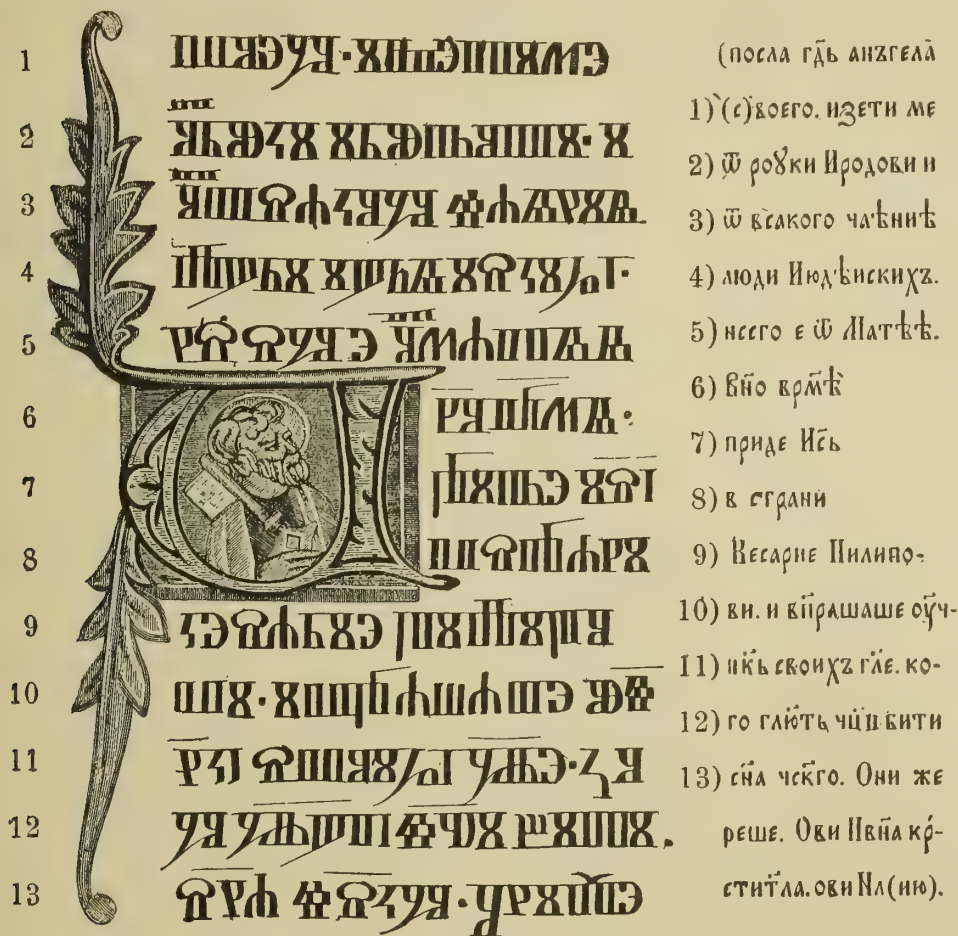 1 ⰲⱁⰵⰳⱁ·ⰻⰸⰵⱅⰻⰿⰵ
2 ⱁⱅ ⱃⱆⰽⰻ ⰻⱃⱁⰴⱁⰲⰻ·ⰻ
3 ⱁⱅ ⰲⱄⰰⰽⱁⰳⱁ ⱍⰰⱑⱀⰻⱑ
4 ⰾⱓⰴⰻ ⰻⱓⰴⱑⰻⱄⰽⰻⱈⱏ·
5 ⱀⱄⱄⰳⱁ ⰵ ⱁⱅ ⰿⰰⱅⱑⱑ
6 ⰲ ⱀⱁ ⰲⱃⰿⱑ·
7 ⱂⱃⰻⰴⰵ ⰻⱄⱐ
8 ⰲⱄⱅⱃⰰⱀⰻ
9 ⰽⰵⱄⰰⱃⰻⰵ ⱂⰻⰾⰻⱂⱁ
10 ⰲⰻ·ⰻⰲⱂⱃⰰⱎⰰⱎⰵ ⱆⱍ
11 ⱀⰽⱐ ⱄⰲⱁⰻⱈⱐ ⰳⰾⰵ·ⰽⱁ
12 ⰳⱁ ⰳⰾⱓⱅⱐ ⱍⱌⰻ ⰱⰻⱅⰻ.
13 ⱄⱀⰰ ⱍⱄⰽⰳⱁ·ⱁⱀⰻⰶⰵ
(посла гд҃ь анъгела
1) (с)воего. изети ме
2) ѿ роꙋки Иродови и
3) ѿ всакого чаѣниѣ
4) люди Июдѣискихъ.
5) нссго е ѿ Матѣѣ.
6) Вн҃о врм҃ѣ
7) приде Ис҃ь
8) в страни
9) Кесарие Пилипо-
10) ви. и вп҃рашаше оуч҃-
11) нк҃ь своихъ гл҃е. ко-
12) го глю҃ть чц҃и бити
13) сн҃а чск҃го. Они же
реше. Ови Ивн҃а кр҃-
стит҃ла. ови Ил(ию).